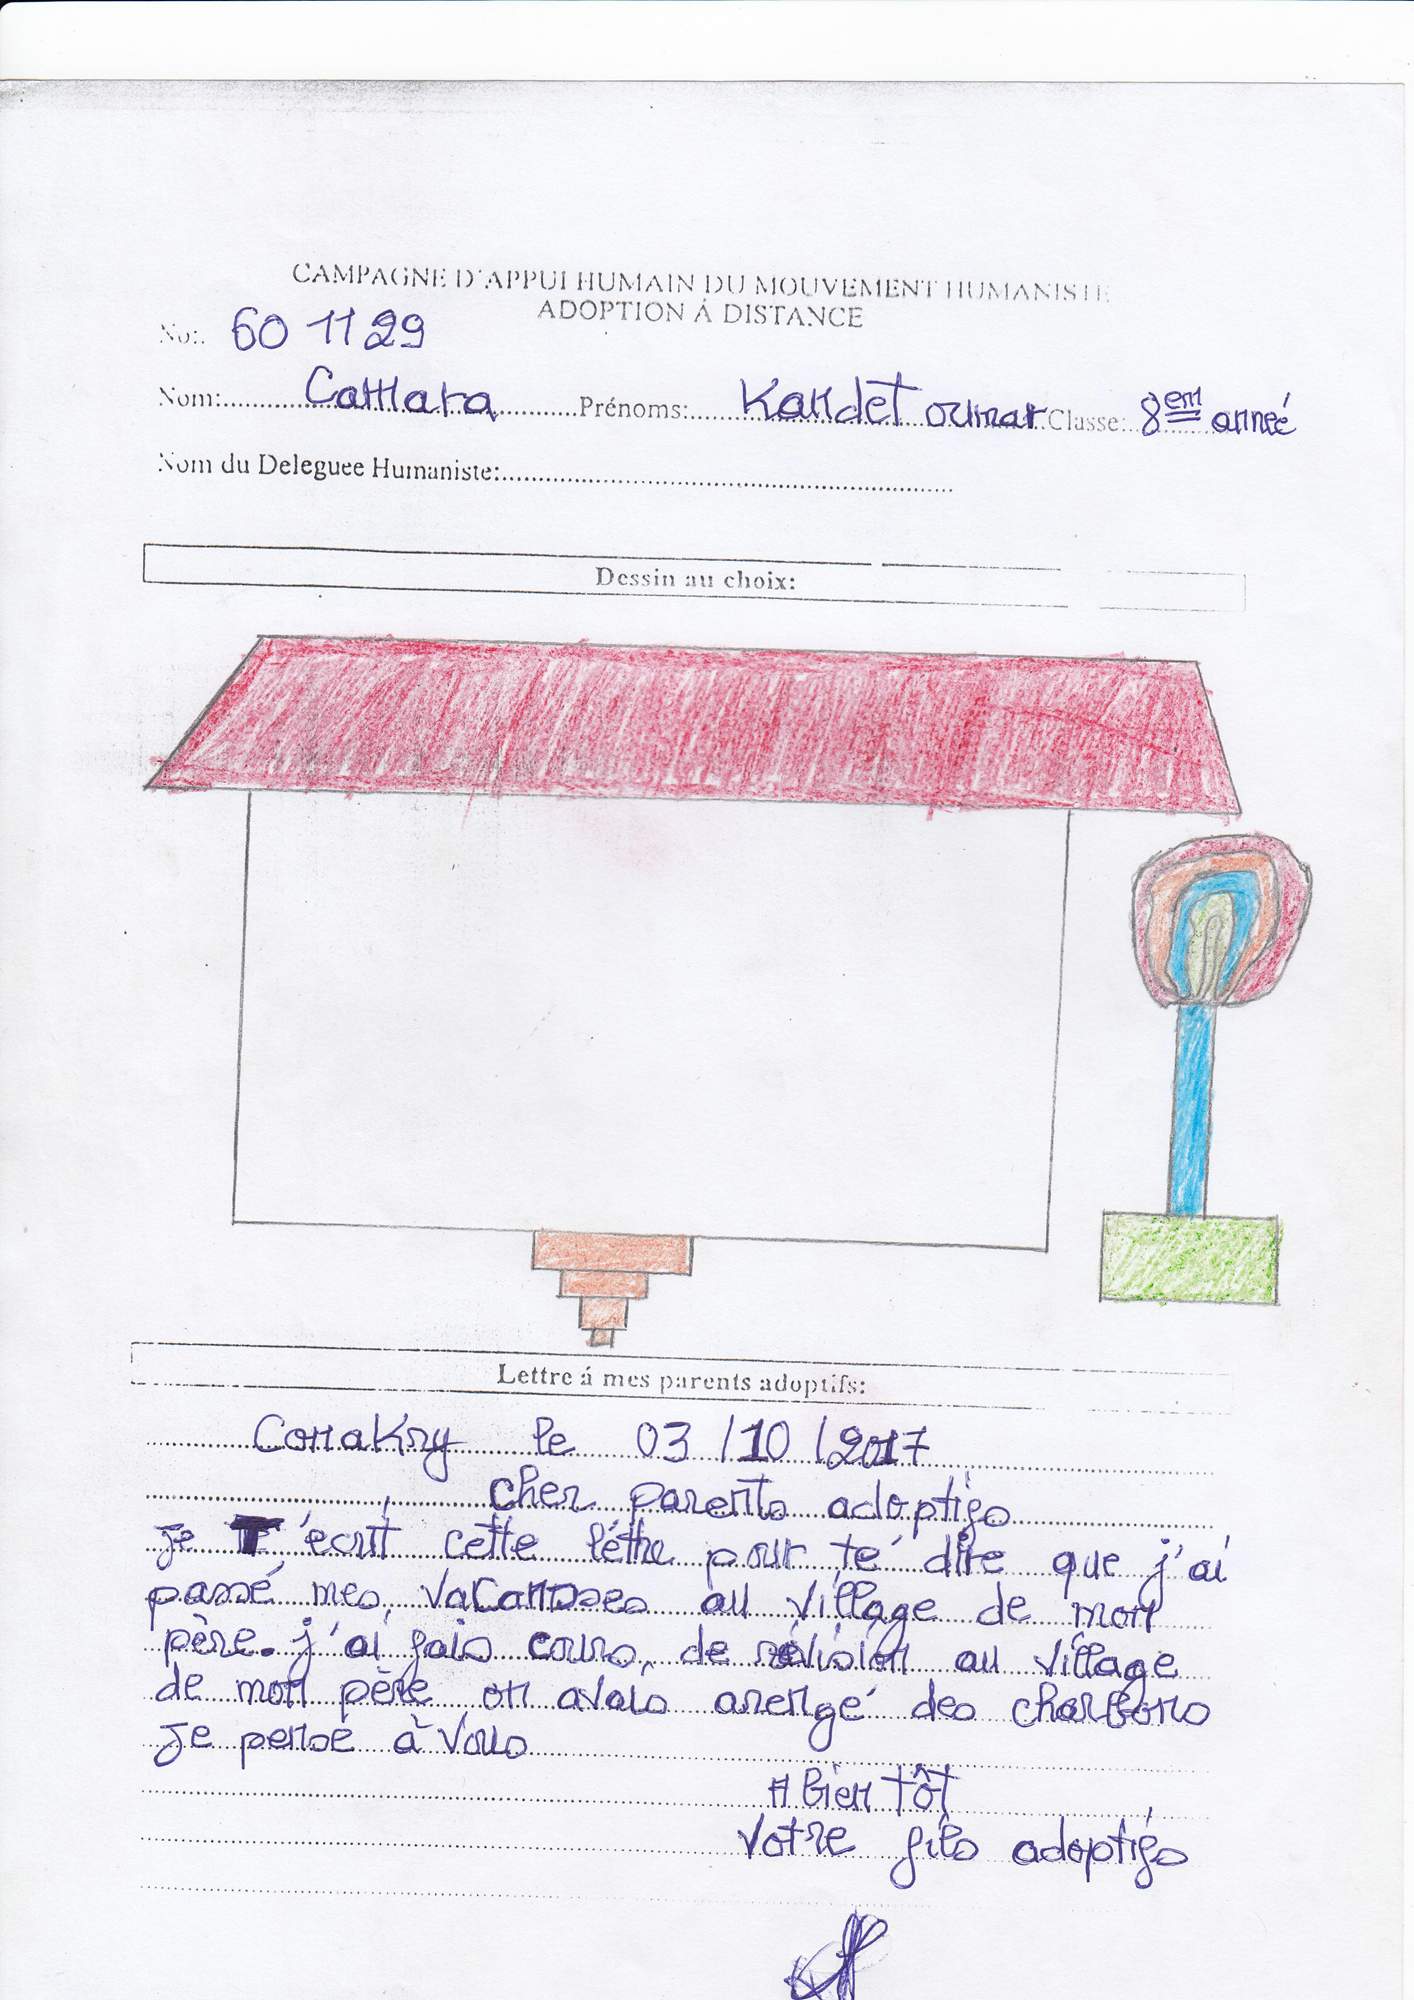 CAMPAGNE D'APPUI HUMAIN DU MOUVEMENT HUMANISTE
ADOPTION Á DISTANCE
No:. 601129
Nom: Camara Prénoms: Kandet oumar Classe: 8em anneé
Nom du Deleguee Humaniste:
Dessin au choix:
Lettre á mes parents adoptifs:
Conakry le 03/10/2017
cher parents adoptifs
je T'écrit cette léttre pour te dire que j'ai
passé mes, vacansses au village de mon
père. j'ai fais cours, de révision au village
de mon père on avais arengé des charbons
Je pense à vous
A bien tôt
Votre fils adoptifs